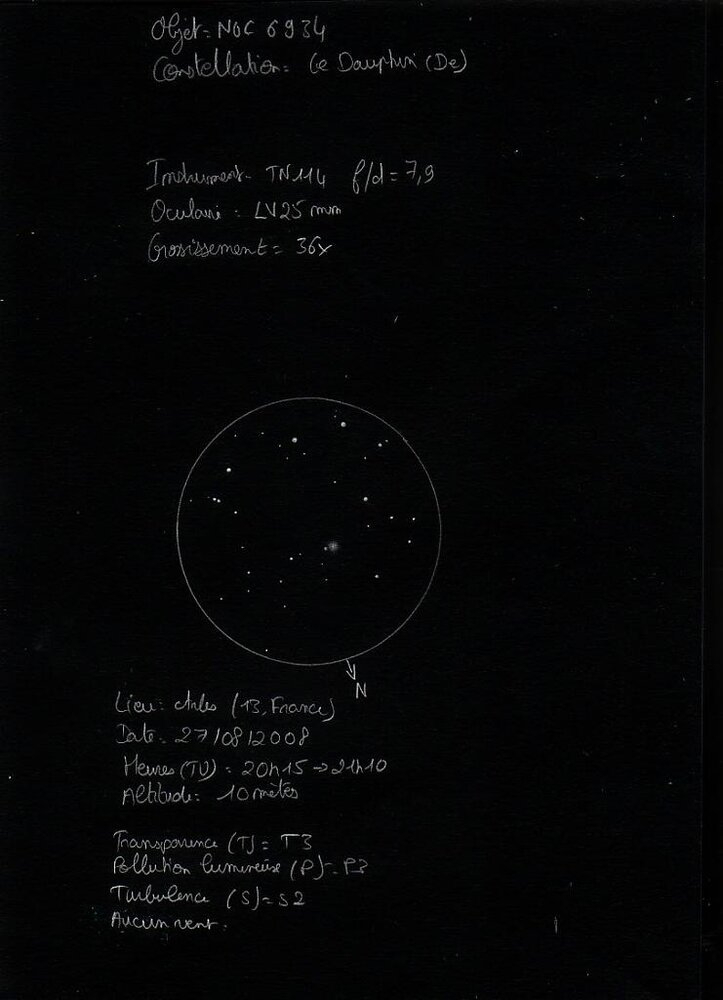 Objet = NGC 6934
Constellation = Le Dauphin (De)
Instrument = TN114 f/d = 7,9
Oculaire : LV25 mm
Grossissement = 36x
N
Lieu : Arles (13, France)
Date : 27/08/2008
Heures (TU) = 20h15 → 21h10
Altitude : 10 mètres
Transparence (T) = T3
Pollution lumineuse (P) = P3
Turbulence (S) = S2
Aucun vent.